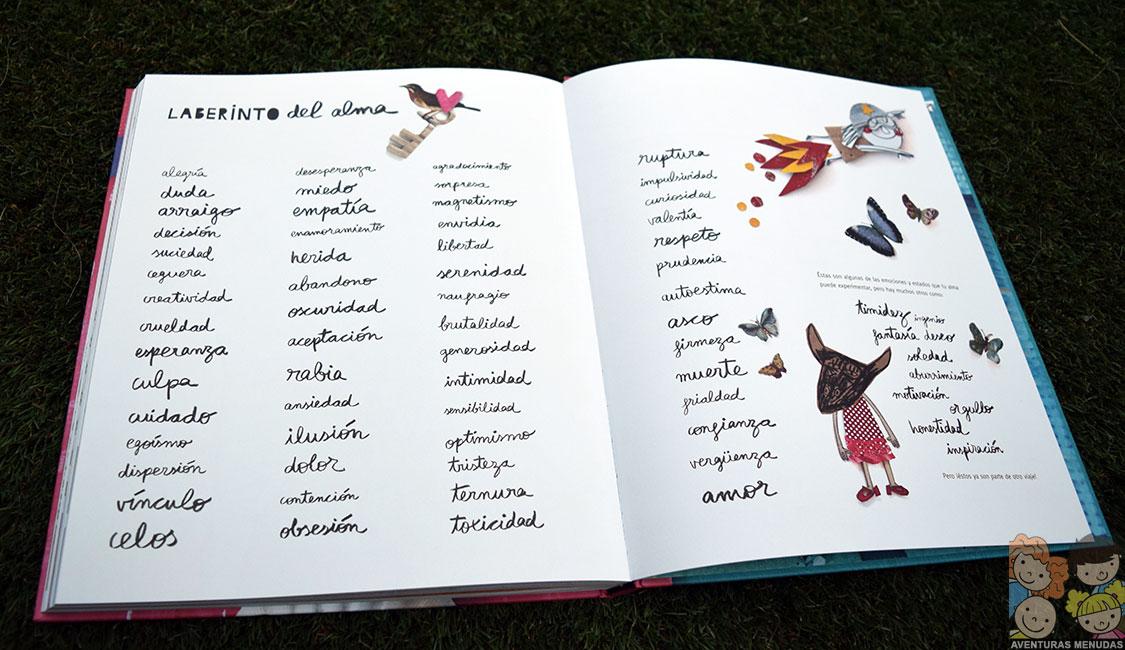 LABERINTO del alma
alegría
duda
arraigo
decisión
suciedad
ceguera
creatividad
crueldad
esperanza
culpa
cuidado
egoísmo
dispersión
vínculo
celos
desesperanza
miedo
empatía
enamoramiento
herida
abandono
oscuridad
aceptación
rabia
ansiedad
ilusión
dolor
contención
obsesión
agradecimiento
sorpresa
magnetismo
envidia
libertad
serenidad
naufragio
brutalidad
generosidad
intimidad
sensibilidad
optimismo
tristeza
ternura
toxicidad
ruptura
impulsividad
curiosidad
valentía
respeto
prudencia
autoestima
asco
firmeza
muerte
frialdad
confianza
vergüenza
amor
Éstas son algunas de las emociones y estados que tu alma
puede experimentar, pero hay muchos otros como:
timidez ingenio
fantasía deseo
soledad
aburrimiento
motivación
orgullo
honestidad
inspiración
Pero ¡éstos ya son parte de otro viaje!
AVENTURAS MENUDAS